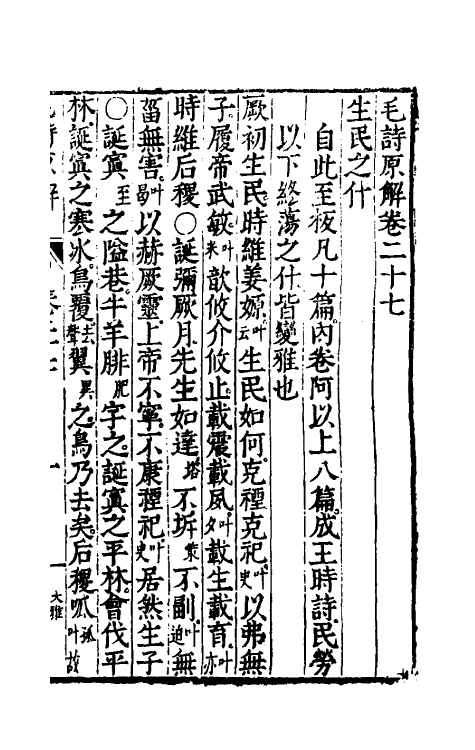 毛詩原解卷二十七
生民之什
自此至板凡十篇內卷阿以上八篇成王時詩民勞
以下終蕩之什皆變雅也
厥初生民時維姜嫄叶云生民如何克禋克祀叶史以弗無
子履帝武敏叶米歆攸介攸止載震載夙叶夕載生載育叶亦
時維后稷○誕彌厥月先生如達塔不坼策不副叶迫無
菑無害叶曷以赫厥靈上帝不寧不康禋祀叶史居然生子
○誕寘至之隘巷牛羊腓肥字之誕寘之平林會伐平
林誕寘之寒氷鳥覆去聲翼異之鳥乃去矣后稷呱孤叶故
卷二十七
一
大雅